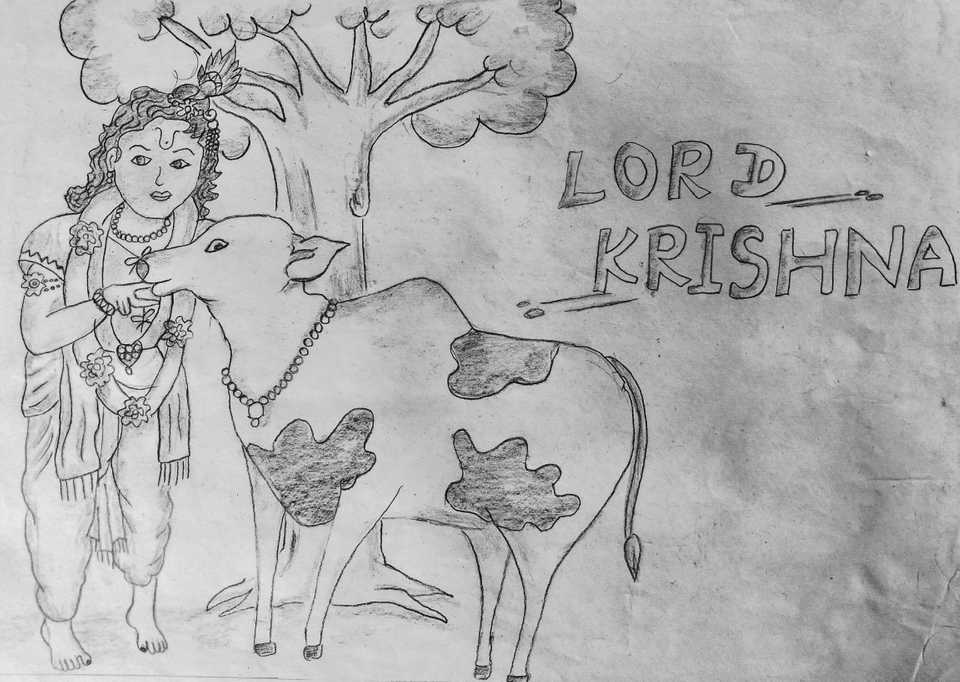 LORD
KRISHNA